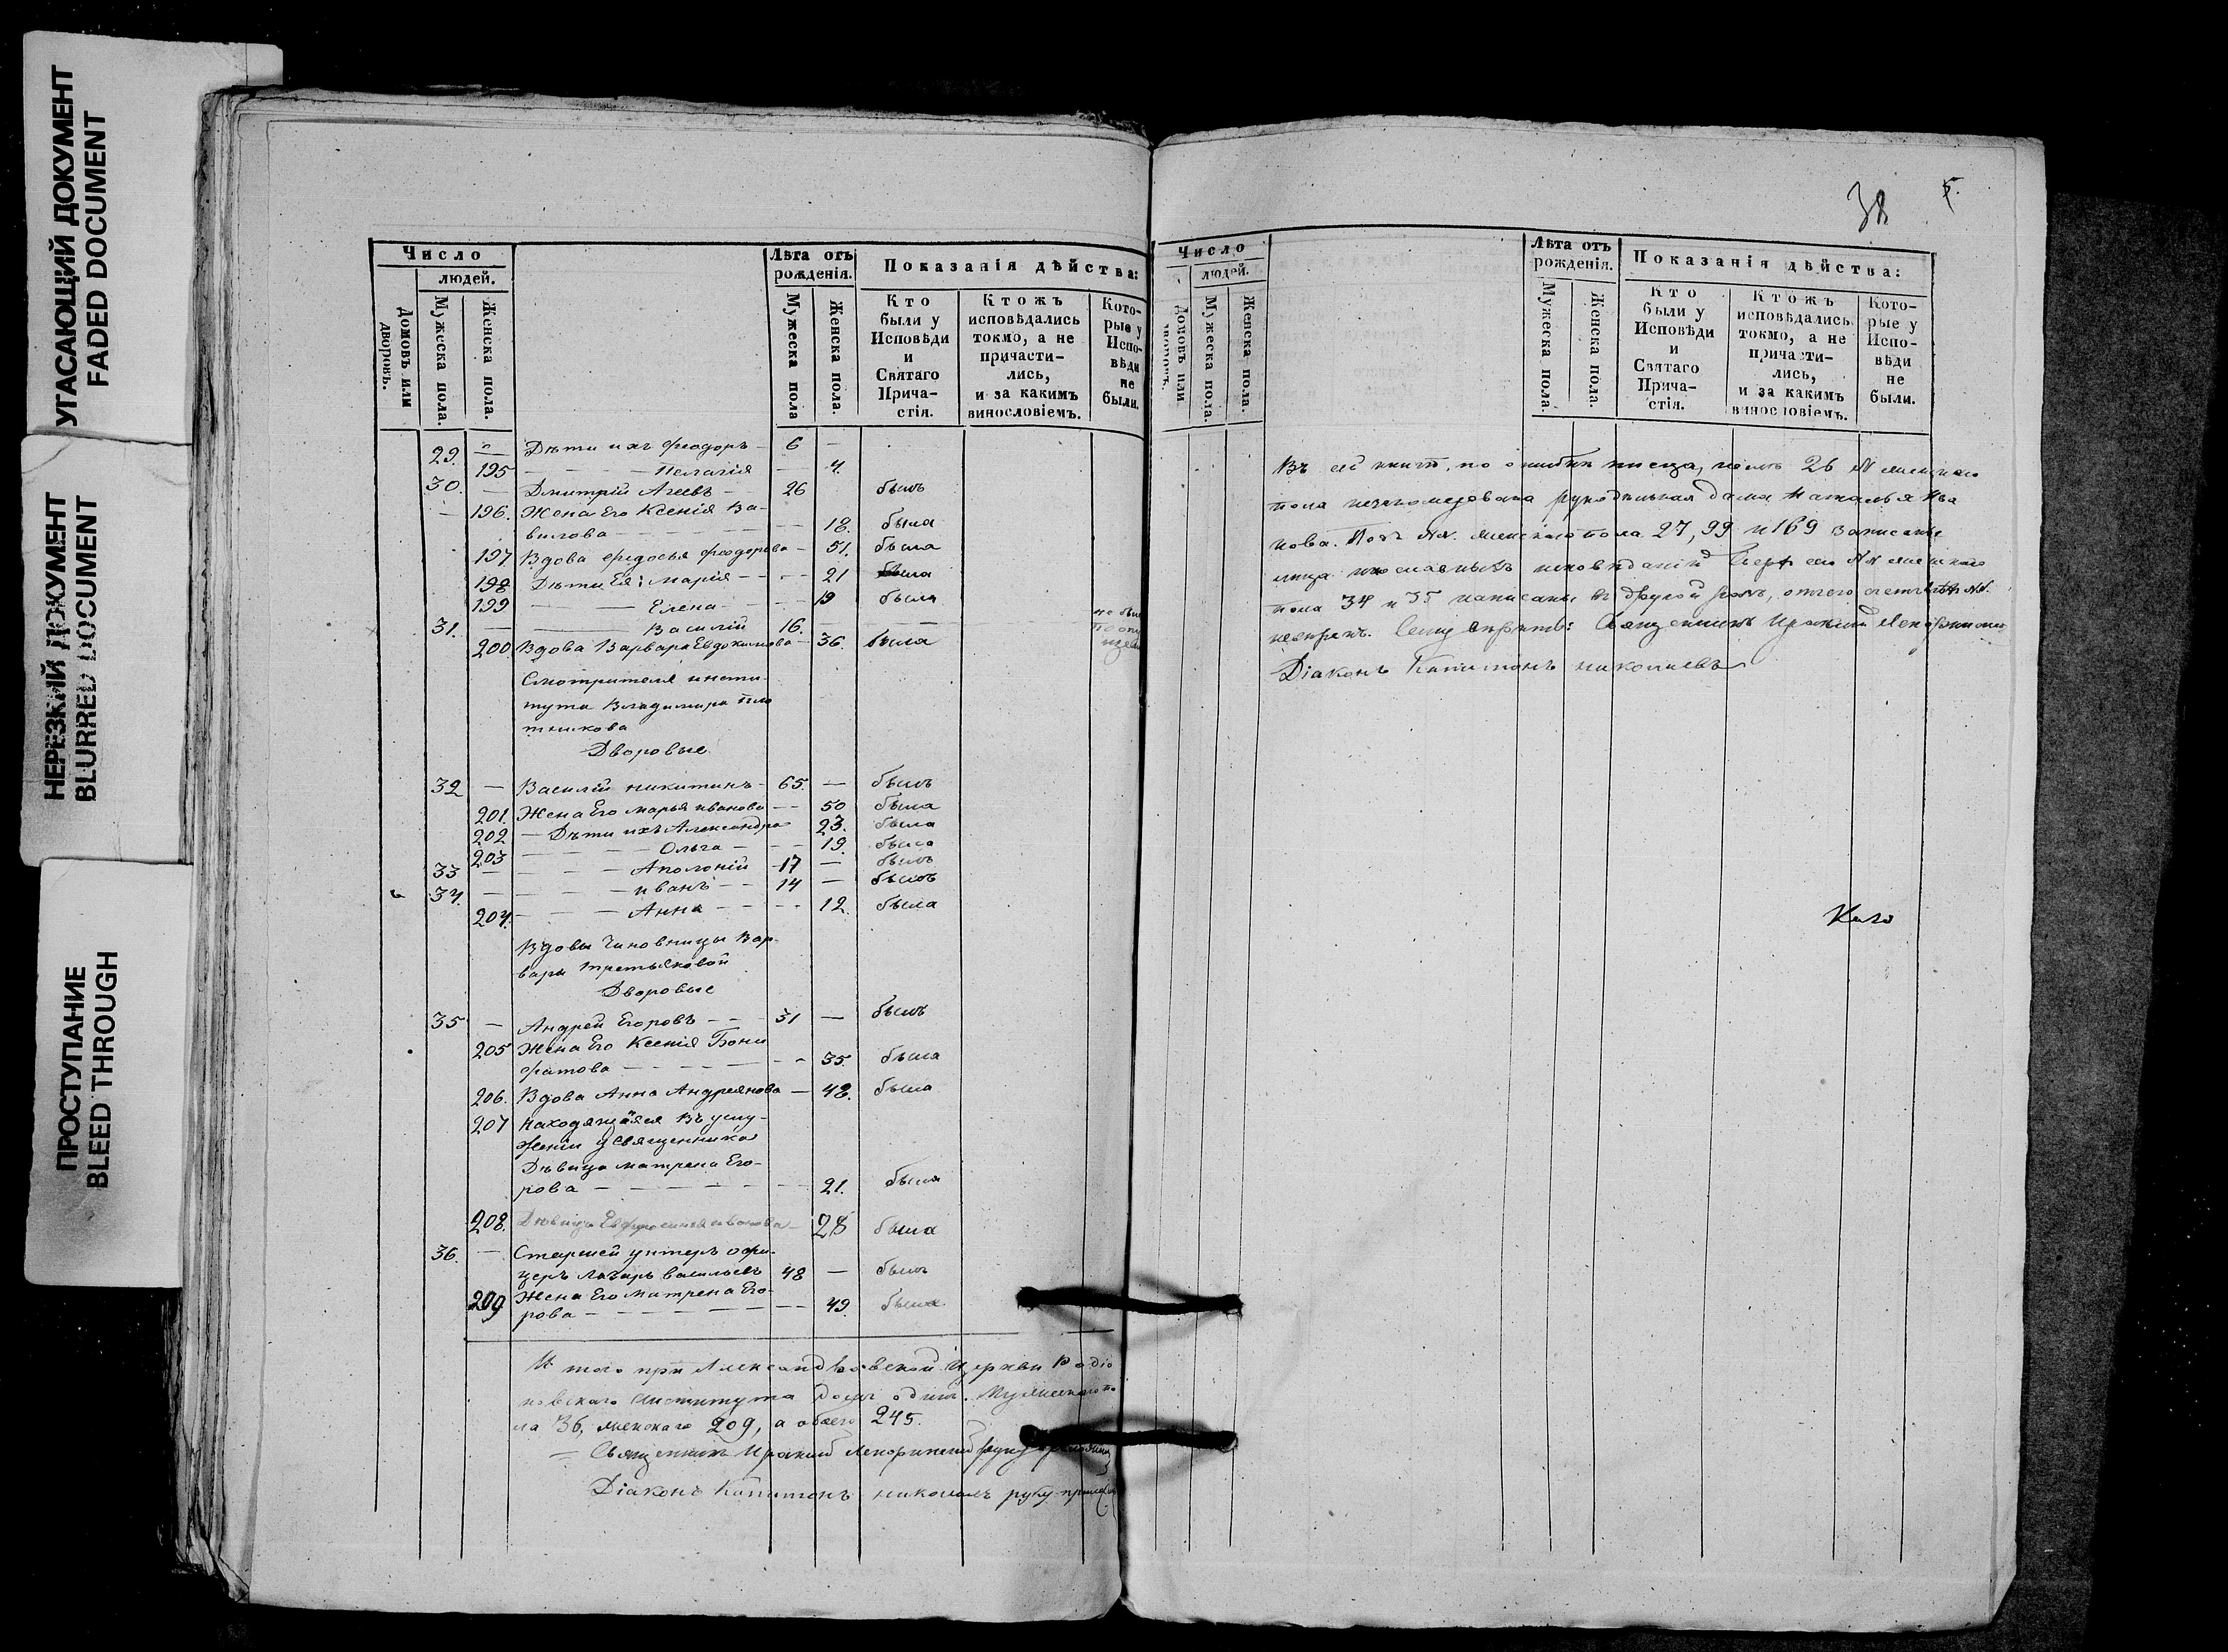 УГАСАЮЩИЙ ДОКУМЕНТ
FADED DOCUMENT
НЕРЕЗКИЙ ДОКУМЕНТ
BLURRED DOCUMENT
ПРОСТУПАНИЕ
BLEED THROUGH
Число
людей.
Домовъ или дворовъ.
Мужеска пола.
Женска пола.
Лѣта отъ рожденія.
Мужеска пола
Женска пола.
Показанія дѣйства:
Кто были у Исповѣди и Святаго Прича-стія.
Ктожъ исповѣдались токмо, а не причасти-лись, и за какимъ винословіемъ.
Кото-рые у Испо-вѣди не были.
29. — Дѣти ихъ Феодоръ — 6 —
195 — — — Пелагія — 4.
30. — Дмитрій Агеевъ — 26 былъ
— 196. Жена Его Ксенія Ва-
вилова — — — 18. была
197 Вдова Федосья Феодорова — 51. была
198 Дѣти Ея: Марія — — — 21 была
199 — — Елена — — — 19 была
31. — — Василій 16. — не был
200 Вдова Варвара Евдокимова — 36. была
Смотрителя инсти-
тута Владимира Пло
тникова
Дворовые
32 — Василій Никитинъ — 65. — былъ
201. Жена Его Марья Иванова — — 50 была
202 — Дѣти ихъ Александра 23. была
203 — — — Ольга — — 19. была
33 — — — Аполоній 17 — былъ
34. — — — Иванъ — — 14 — былъ
204. — — — Анна — — — 12. была
Вдовы Чиновницы Вар-
вары Третьяковой
Дворовые
35 — Андрей Егоровъ — — 31 — былъ
205 Жена Его Ксенія Бони
фатова — — — — — 35. была
206. Вдова Анна Андреянова — 48. была
207 Находящаяся Въ услу-
женіи у Священника
Дѣвица Матрена Его-
рова — — — — — 21. была
208. Дѣвица Ефросинія 28 была
36. — Старшей унтеръ офи-
церъ Лазарь Васильевъ 48 — былъ
209 Жена Его Матрена Его-
рова — — — — — — 49. была
Итого при Александровской Церкви Родіо
новскаго Института домъ одинъ. Мужескаго по
ла 36, женскаго 209, а обоего 245.
= Священникъ Ираклій
Діаконъ Капитонъ Николаевъ руку приложилъ
38
Число
людей.
Домовъ или дворовъ.
Мужеска пола.
Женска пола.
Лѣта отъ рожденія.
Мужеска пола.
Женска пола.
Показанія дѣйства:
Кто были у Исповѣди и Святаго Прича-стія.
Ктожъ исповѣдались токмо, а не причасти-лись, и за какимъ винословіемъ.
Кото-рые у Испо-вѣди не были.
Въ сей книгѣ, по ошибкѣ писца, 26 № женскаго
пола дама Наталья Ива
нова. Подъ №№ женскаго пола 27, 99 и 169 записаны
лица исповѣданій №№ женскаго
пола 34 и 35 написаны въ другой разъ, отчего счетъ №№
Священникъ Ираклій
Діаконъ Капитонъ Николаевъ